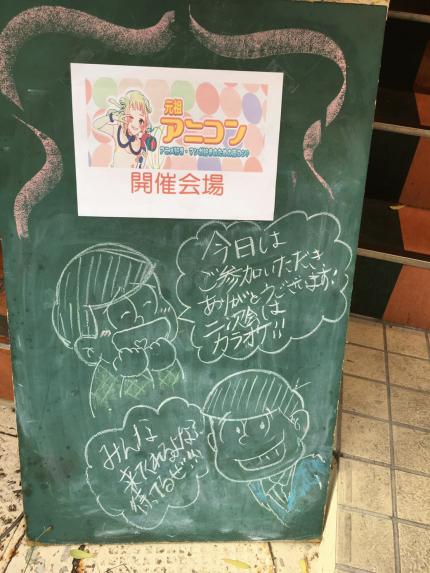 元祖
アニコン
アニメ好き・マンガ好きのための街コン♪
開催会場
今日は
ご参加いただき
ありがとうございます!
二次会は
カラオケ!!
みんな
来てくれるよな?
待ってるぜ!!